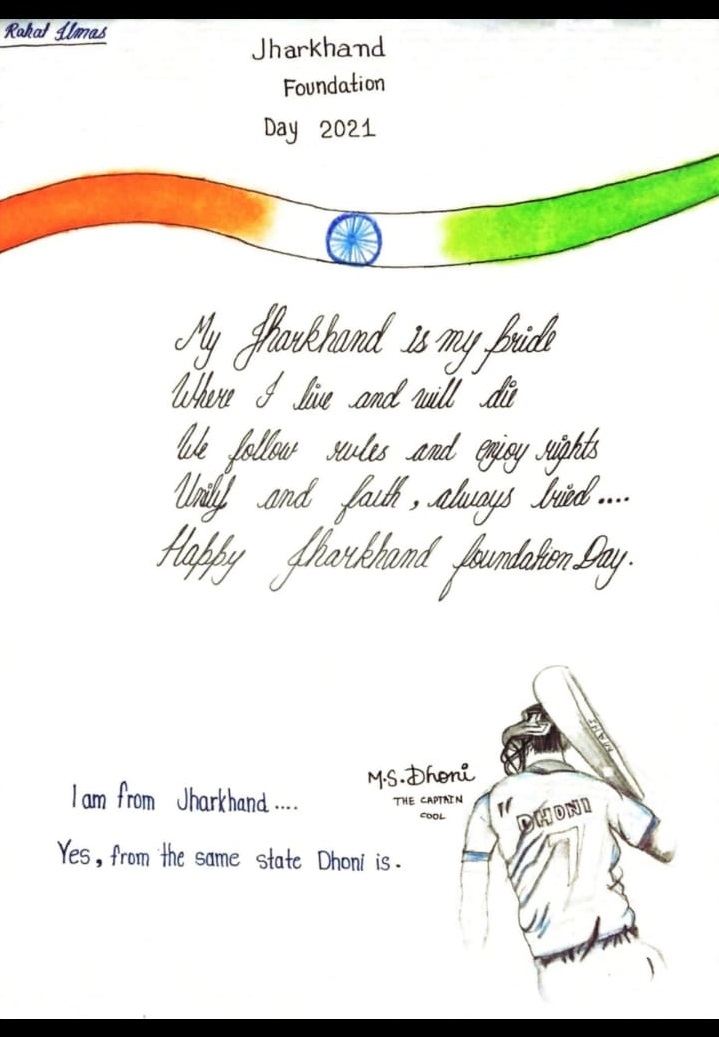 Rahat Ilmas
Jharkhand
Foundation
Day 2021
My Jharkhand is my pride
Where I live and will die
We follow rules and enjoy rights
Unity and faith, always tried....
Happy Jharkhand foundation Day.
M.S.Dhoni
THE CAPTAIN
COOL
I am from Jharkhand....
Yes, from the same state Dhoni is.
MAHI
DHONI
7